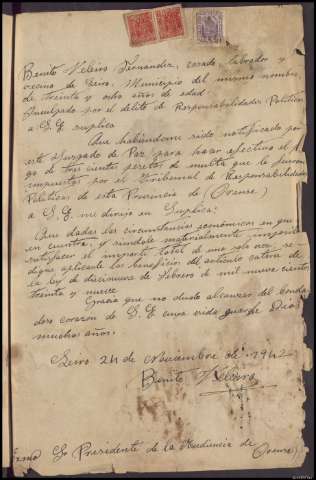 Benito Veleiro Fernandez, casado, labrador y
vecino de Beiro, Municipio del mismo nombre,
de treinta y ocho años de edad
por el delito de Responsabilidades Politicas
a S.E. suplica
Que habiendome sido notificado por
este Juzgado de Paz para hacer efectivo el pa
go de tres cientas pesetas de multa que le fueron
impuestas por el Tribunal de Responsabilidades
Politicas de esta Provincia de (Orense)
a S.E. me dirijo en Suplica:
Que dadas las circunstancias económicas en que
en cuentro, y siendole materialmente imposible
satisfacer el importe total de una sola vez, se
digne aplicarle los beneficios del articulo catorce de
la ley de diecinueve de Febrero de mil nueve cientos
treinta y nueve
Gracia que no dudo alcanzar del bonda
doso corazon de S.E. cuya vida guarde Dios
muchos años.
Beiro 24 de Noviembre de 1942
Benito Veleiro
Sr Presidente de la Audiencia de (Orense)